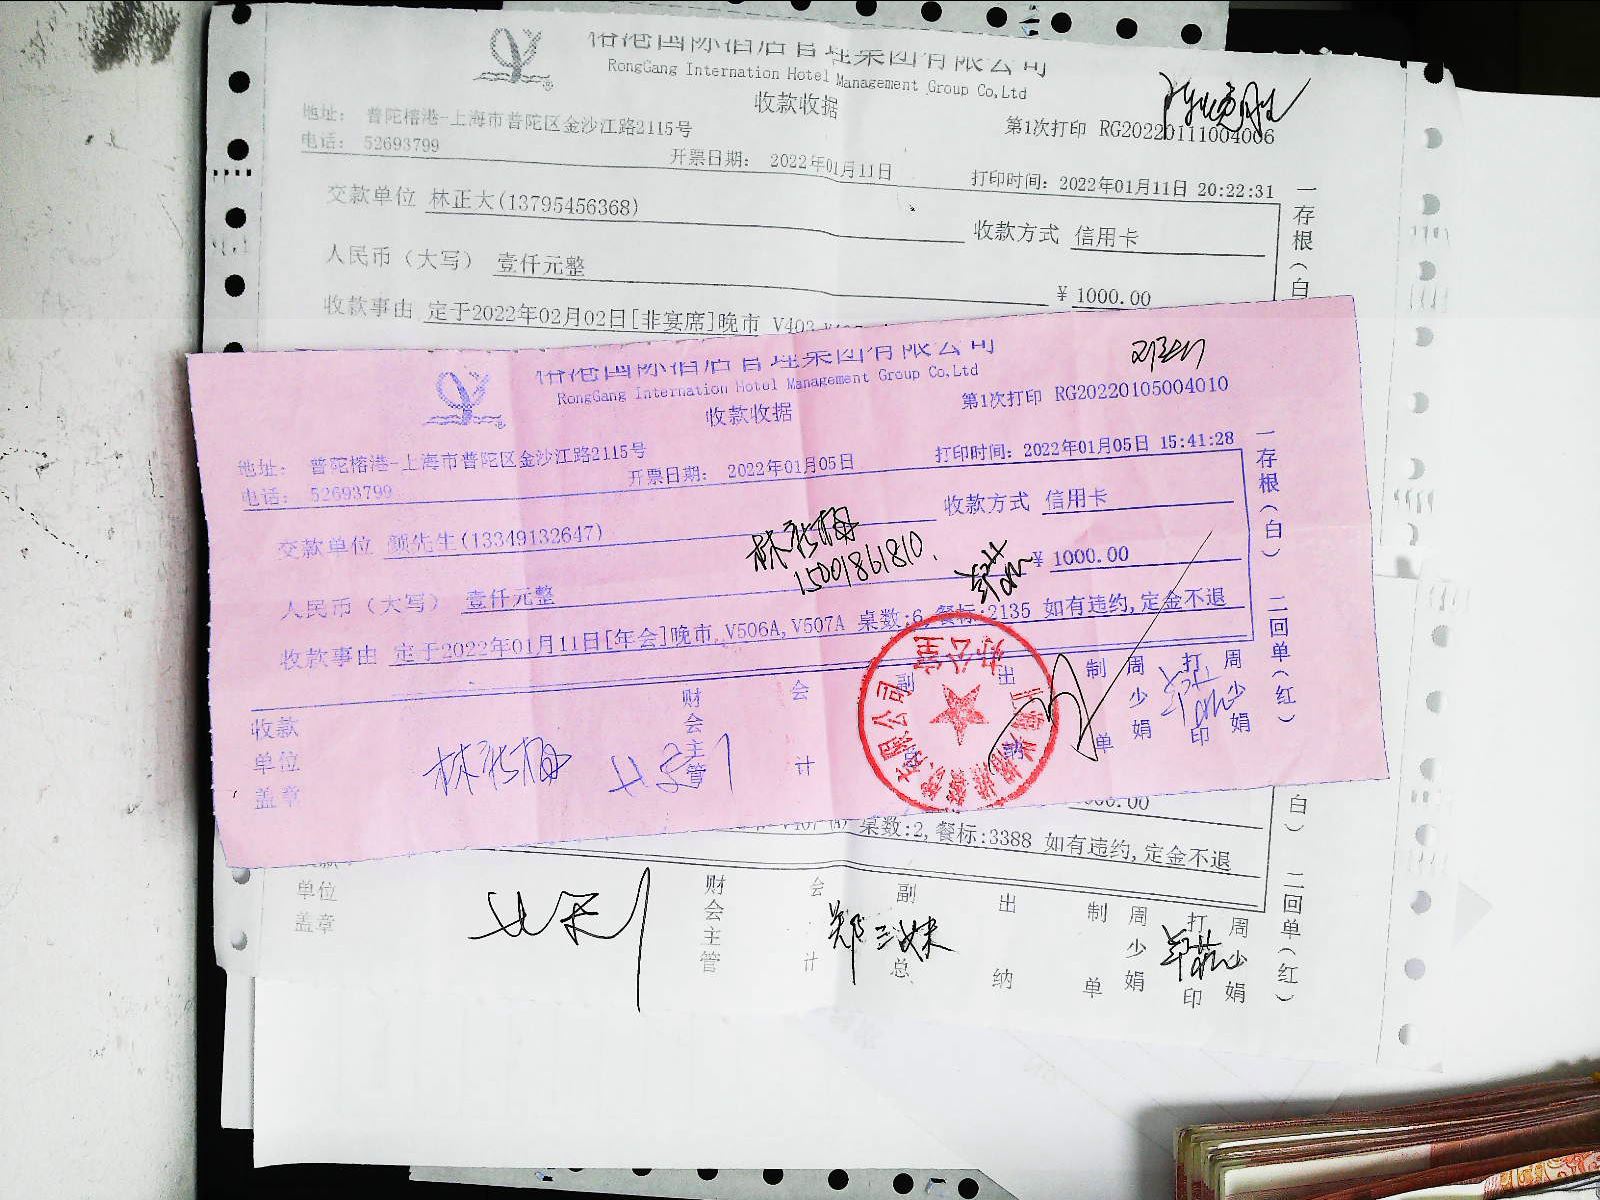 RongGang Internation Hotel Management Group Co,Ltd
收款收据
地址: 普陀榕港-上海市普陀区金沙江路2115号
第1次打印 RG20220111004006
电话: 52693799
开票日期: 2022年01月11日
打印时间: 2022年01月11日 20:22:31
交款单位 林正大(13795456368)
收款方式 信用卡
人民币(大写) 壹仟元整
¥ 1000.00
收款事由 定于2022年02月02日[非宴席]晚市 V403
一存根(白
国际酒店管理集团有限公司
RongGang Internation Hotel Management Group Co,Ltd
收款收据
第1次打印 RG20220105004010
地址: 普陀榕港-上海市普陀区金沙江路2115号
电话: 52693799
开票日期: 2022年01月05日
打印时间: 2022年01月05日 15:41:28
交款单位 颜先生(13349132647)
收款方式 信用卡
15001861810.
人民币(大写) 壹仟元整
¥ 1000.00
收款事由 定于2022年01月11日[年会]晚市 V506A,V507A 桌数:6,餐标:2135 如有违约,定金不退
一存根(白) 二回单(红)
收款单位盖章
财会主管
会计
副
出
制单
周少娟
打印
周少娟
办公室
有限公司
桌数:2,餐标:3388 如有违约,定金不退
白) 二回单(红)
单位盖章
财会主管
会计
副总
郑三妹
出纳
制单
周少娟
打印
周少娟